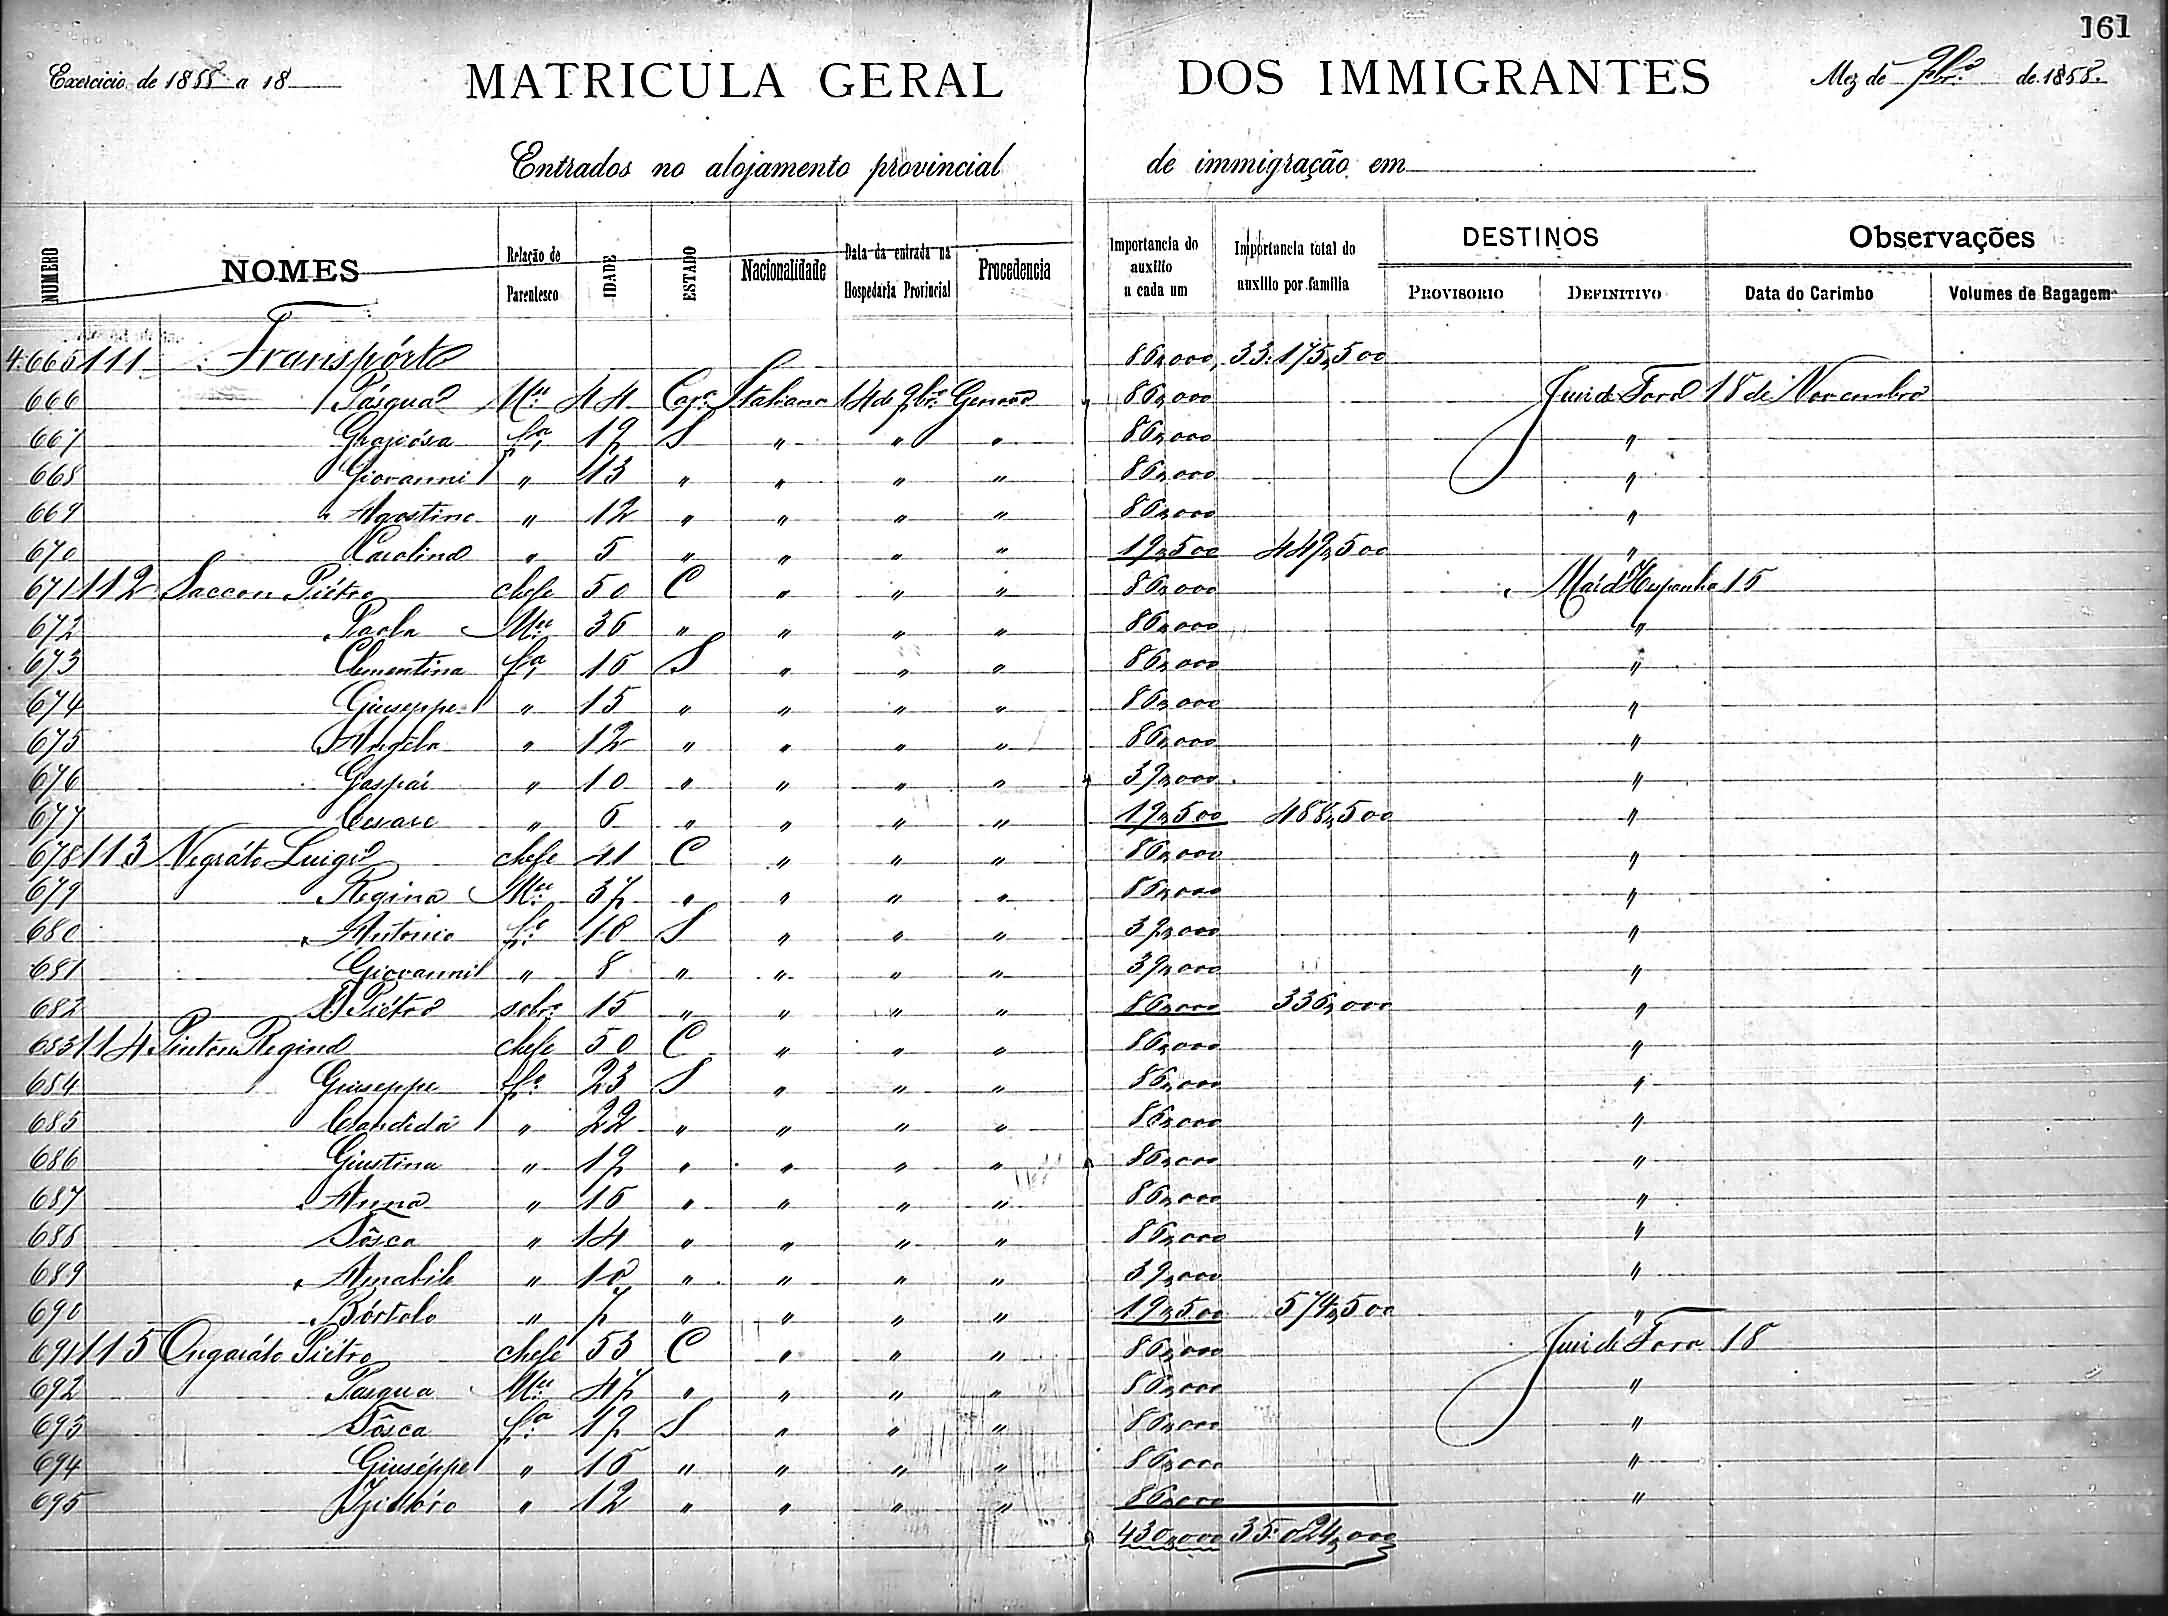 161
Exercicio de 1888 a 18
MATRICULA GERAL DOS IMMIGRANTES
Mez de 9br.º de 1888.
Entrados no alojamento provincial de immigração em
NUMERO NOMES Relação de Parentesco IDADE ESTADO Nacionalidade Data da entrada na Hospedaria Provincial Procedencia Importancia do auxilio a cada um Importancia total do auxilio por familia DESTINOS PROVISORIO DEFINITIVO Observações Data do Carimbo Volumes de Bagagem
4.665 111 Transpórte 86,000, 33:175,500
666 Pásqua Mer 44 Caz.ª Italiana 14 de 9br.º Genova 86,000 Juiz de Fora 18 de Novembro
667 Graciósa fª 17 S " " " 86,000 "
668 Giovanni " 13 " " " " 86,000 "
669 Agostino " 12 " " " " 86,000 "
670 Carolina " 5 " " " " 19,500 449,500 "
671 112 Saccon Piétro chefe 50 C " " " 86,000 Mar d'Hespanha 15
672 Paola Mer 36 " " " " 86,000 "
673 Clementina fª 16 S " " " 86,000 "
674 Giuseppe " 15 " " " " 86,000 "
675 Angéla " 12 " " " " 86,000 "
676 Gaspár " 10 " " " " 39,000 "
677 Cesare " 6 " " " " 19,500 488,500 "
678 113 Negráto Luigi chefe 41 C " " " 86,000 "
679 Regina Mer 37 " " " " 86,000 "
680 Antonio fº 10 S " " " 39,000 "
681 Giovanni " 8 " " " " 39,000 "
682 Piétro sobr.º 15 " " " " 86,000 336,000 "
683 114 Pinton Regina chefe 50 C " " " 86,000 "
684 Giuseppe fº 23 S " " " 86,000 "
685 Candida " 22 " " " " 86,000 "
686 Giustina " 17 " " " " 86,000 "
687 Anna " 16 " " " " 86,000 "
688 Tósca " 14 " " " " 86,000 "
689 Amabile " 10 " " " " 39,000 "
690 Bórtolo " 7 " " " " 19,500 574,500 "
691 115 Ongaráto Piétro chefe 53 C " " " 86,000 Juiz de Fora 18
692 Pasqua Mer 47 " " " " 86,000 "
693 Tósca fª 17 S " " " 86,000 "
694 Giuséppe " 16 " " " " 86,000 "
695 Isidóro " 12 " " " " 86,000 "
430,000 35:024,000